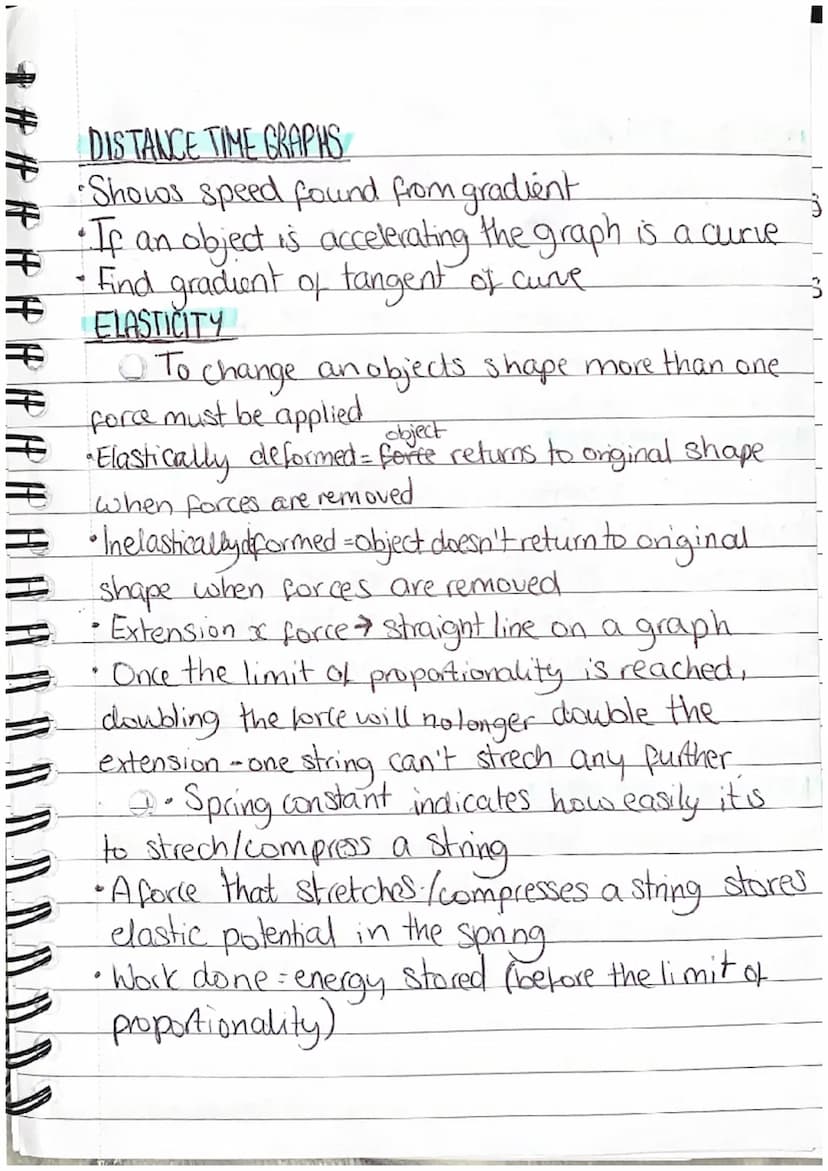 DISTANCE TIME GRAPHS
• Shows speed found from gradient
• If an object is accelerating the graph is a curve
• Find gradient of tangent of curve
ELASTICITY
To change an objects shape more than one
force must be applied
object
• Elastically deformed = force returns to original shape
when forces are removed
• Inelastically dformed = object doesn't return to original
shape when forces are removed
• Extension ∝ force → straight line on a graph
• Once the limit of proportionality is reached,
doubling the force will no longer double the
extension - one string can't strech any further
• Spring constant indicates how easily it is
to strech/compress a string
• A force that stretches/compresses a string stores
elastic potential in the spring
• Work done = energy stored (before the limit of
proportionality)